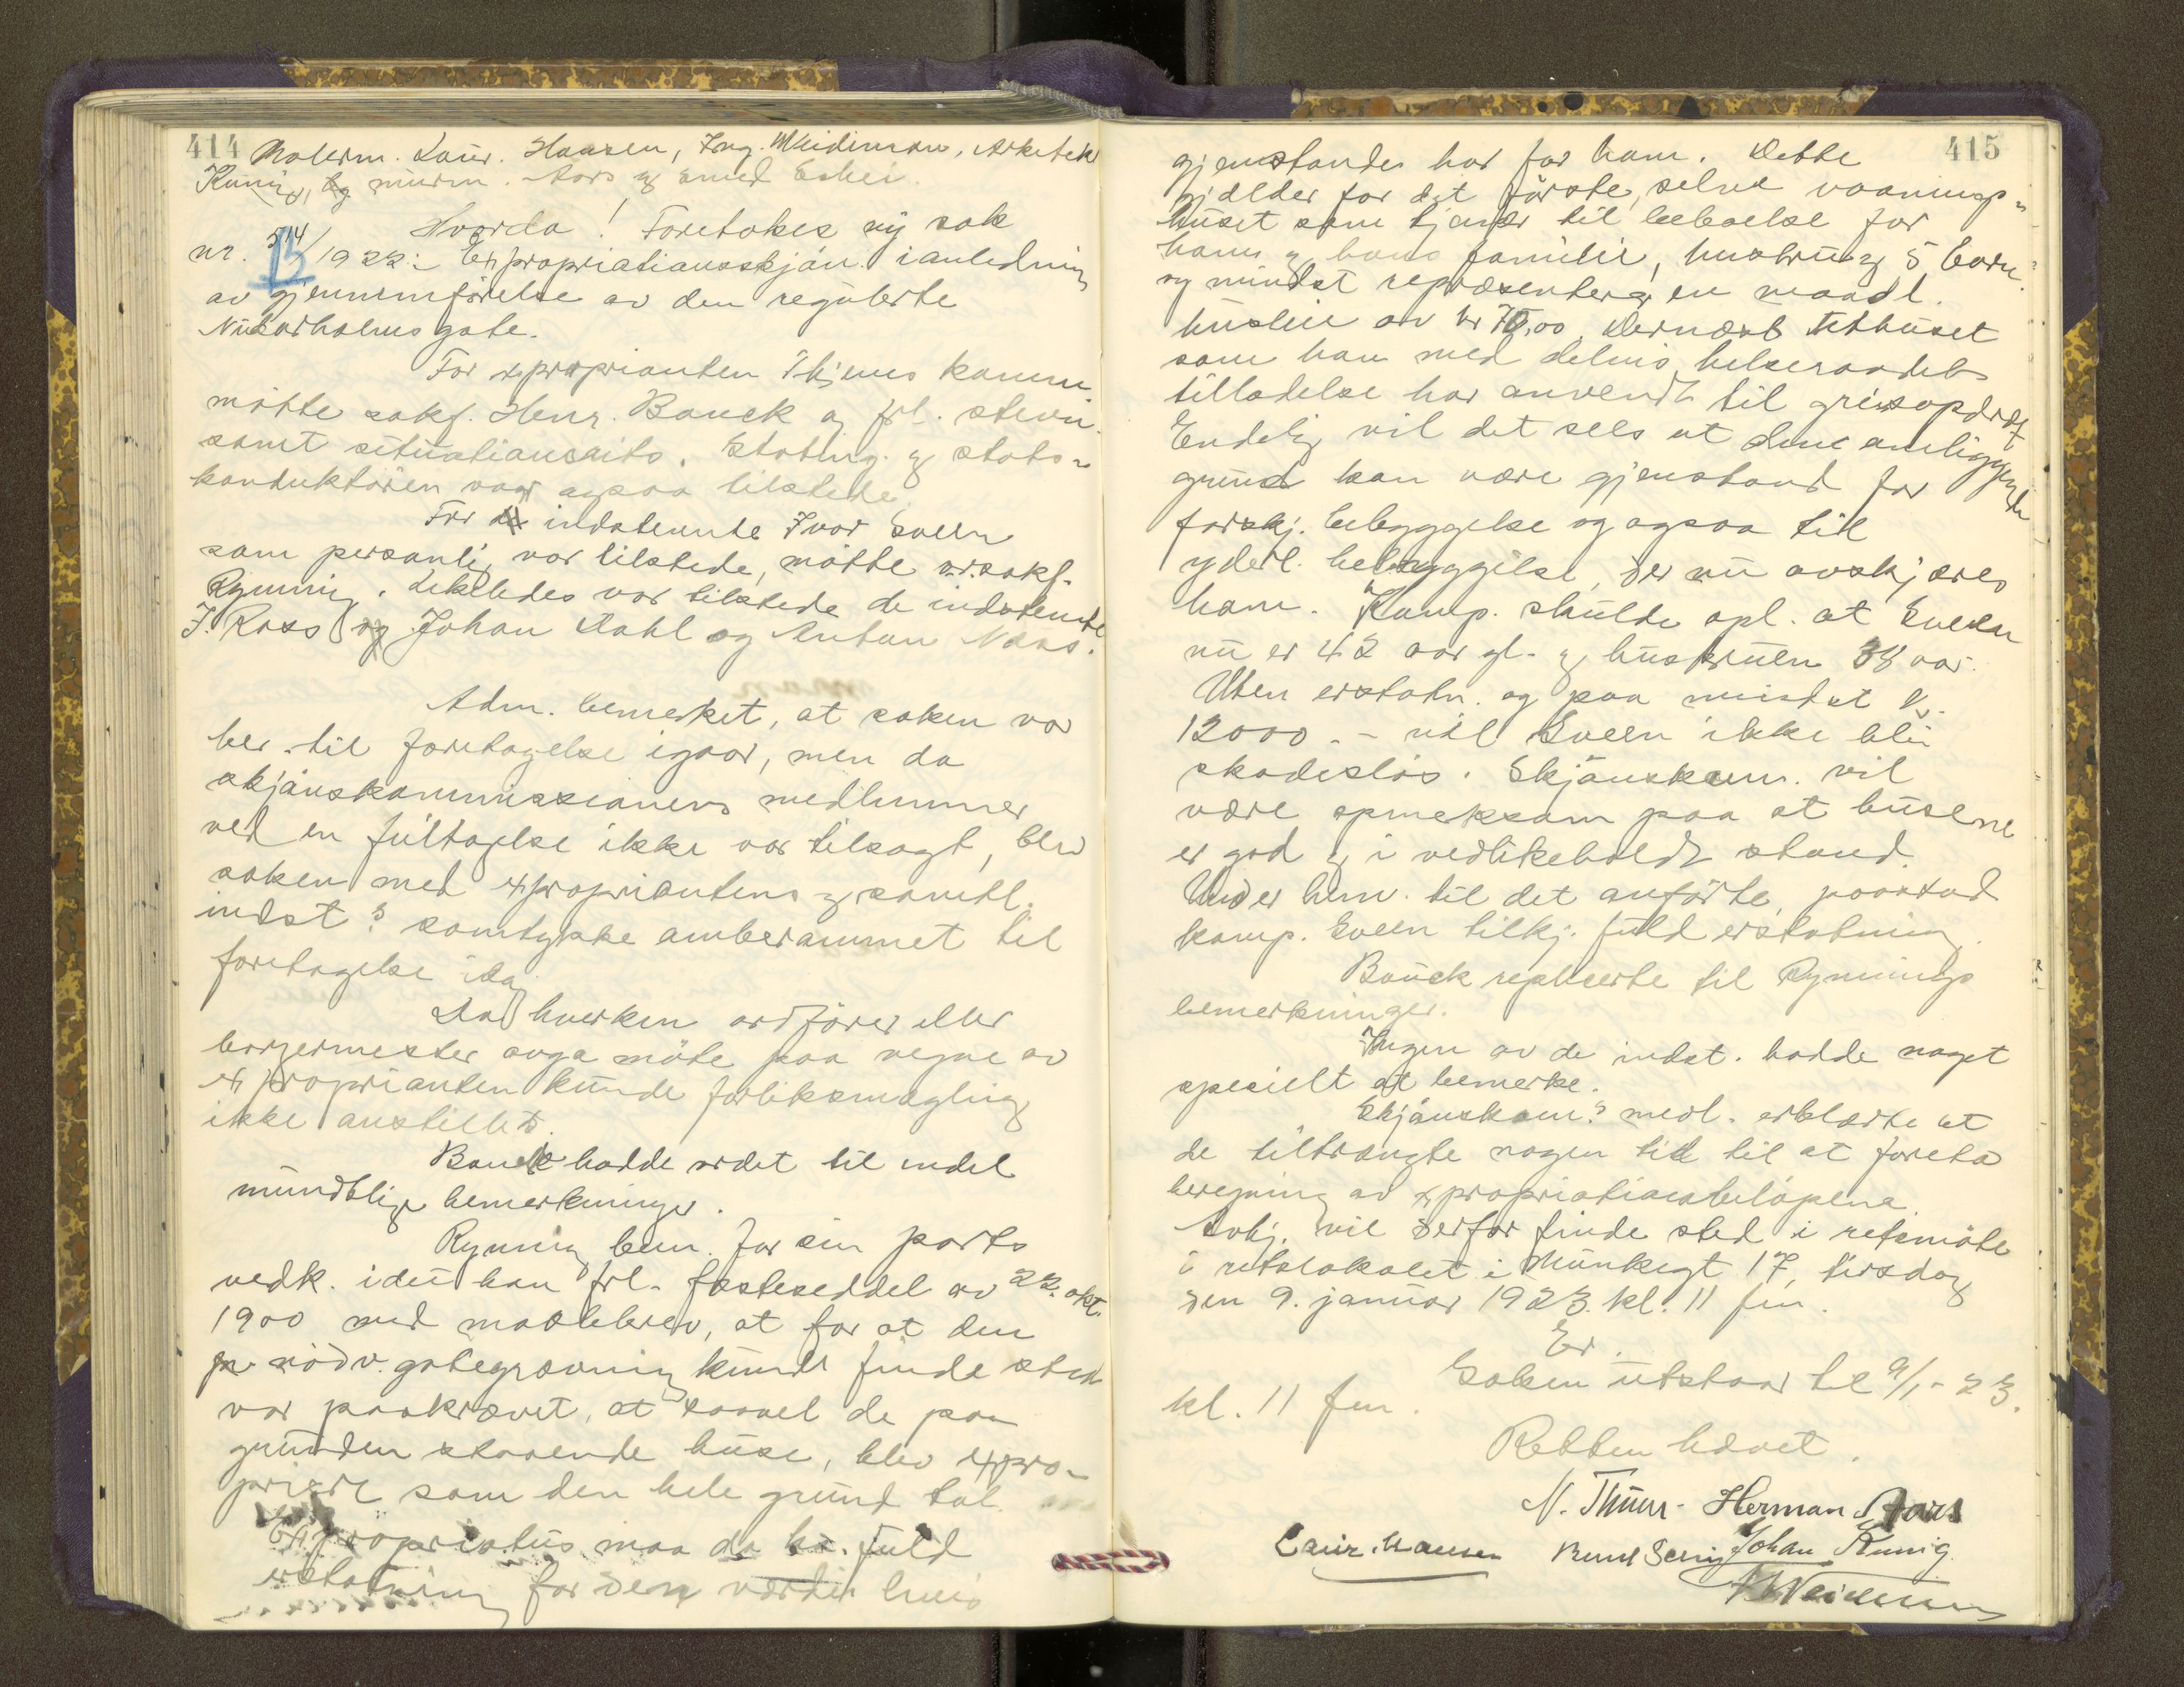 414 Malerm. Laur. Hansen, Ing. Weidemann, Arkitekt
Kunig, og murm. Aars og smed Eskei.
Hvorda! Foretokes ny sak
nr. B 514/1922: Expropriationsskjön i anledning
av gjennemförelse av den regulerte
Nidarholms gate.
For exproprianten Thjems komm.
mötte sakf. Henr. Bauck og frl. stevn.
samt situationsriss. Stating. og stats-
konduktören var ogsaa tilstede
For indstevnte Ivar Sveen
som personlig var tilstede, mötte o.r.sakf.
Rynning. Likeledes var tilstede de indstevnte
J. Ross og Johan Dahl og Anton Naas.
Adm. bemerket, at saken var
ber. til foretagelse igaar, men da
skjönskommissionens medlemmer
ved en feiltagelse ikke var tilsagt, blev
saken med expropriantens og samtl.
indst.s samtykke omberammet til
foretagelse idag.
Da hverken ordförer eller
borgermester avga möte paa vegne av
exproprianten kunde forliksmegling
ikke anstilles.
Bauck hadde ordet til endel
mundtlige bemerkninger.
Rynning bem. for sin parts
vedk. idet han frl. festeseddel av 22. okt.
1900 med maalebrev, at for at den
nödv. gategravning kunde finde sted
var paakrævet, at saavel de paa
grunden staaende huse, blev expro-
priert som den hele grund tal.
Expropriatus maa da ha fuld
erstatning for den værdi hvis
415
gjenstanden har for ham. Dette
gjælder for det förste, selve vaanings-
huset som tjener til beboelse for
ham og hans familie, hustru og 5 barn.
og mindst repræsenterer en maadl.
husleie av kr 70,00. Dernæst uthuset
som han med delvis helseraadets
tilladelse har anvendt til griseopdræt
Endelig vil det sees at den omliggende
grund kan være gjenstand for
forskj. bebyggelse og ogsaa til
yderl. bebyggelse, der nu avskjæres
ham. Komp. skulde opl. at Sveen
nu er 42 aar gl. og hustruen 38 aar.
Uten erstatn. og paa mindst kr.
12000.- vil Sveen ikke bli
skadeslös. Skjönskomm. vil
være opmerksom paa at husene
er god og i vedlikeholdt stand.
Under henv. til det anförte, paastod
komp. Sveen tilkj. fuld erstatning.
Bauck replicerte til Rynnings
bemerkninger.
Ingen av de indst. hadde noget
specielt at bemerke.
Skjönskom.s medl. erklærte at
de tiltrængte nogen tid til at foreta
beregning av expropriationsbelöpene.
Avhj. vil derfor finde sted i retsmöte
i retslokalet i Munkegt 17, tirsdag
den 9. januar 1923 kl. 11 fm.
Er.
Saken utstaar til 9/1-23.
kl. 11 fm.
Retten hævet.
N. Thuus- Herman Aars
Laur. Hansen Johan Kunig
Weidemann